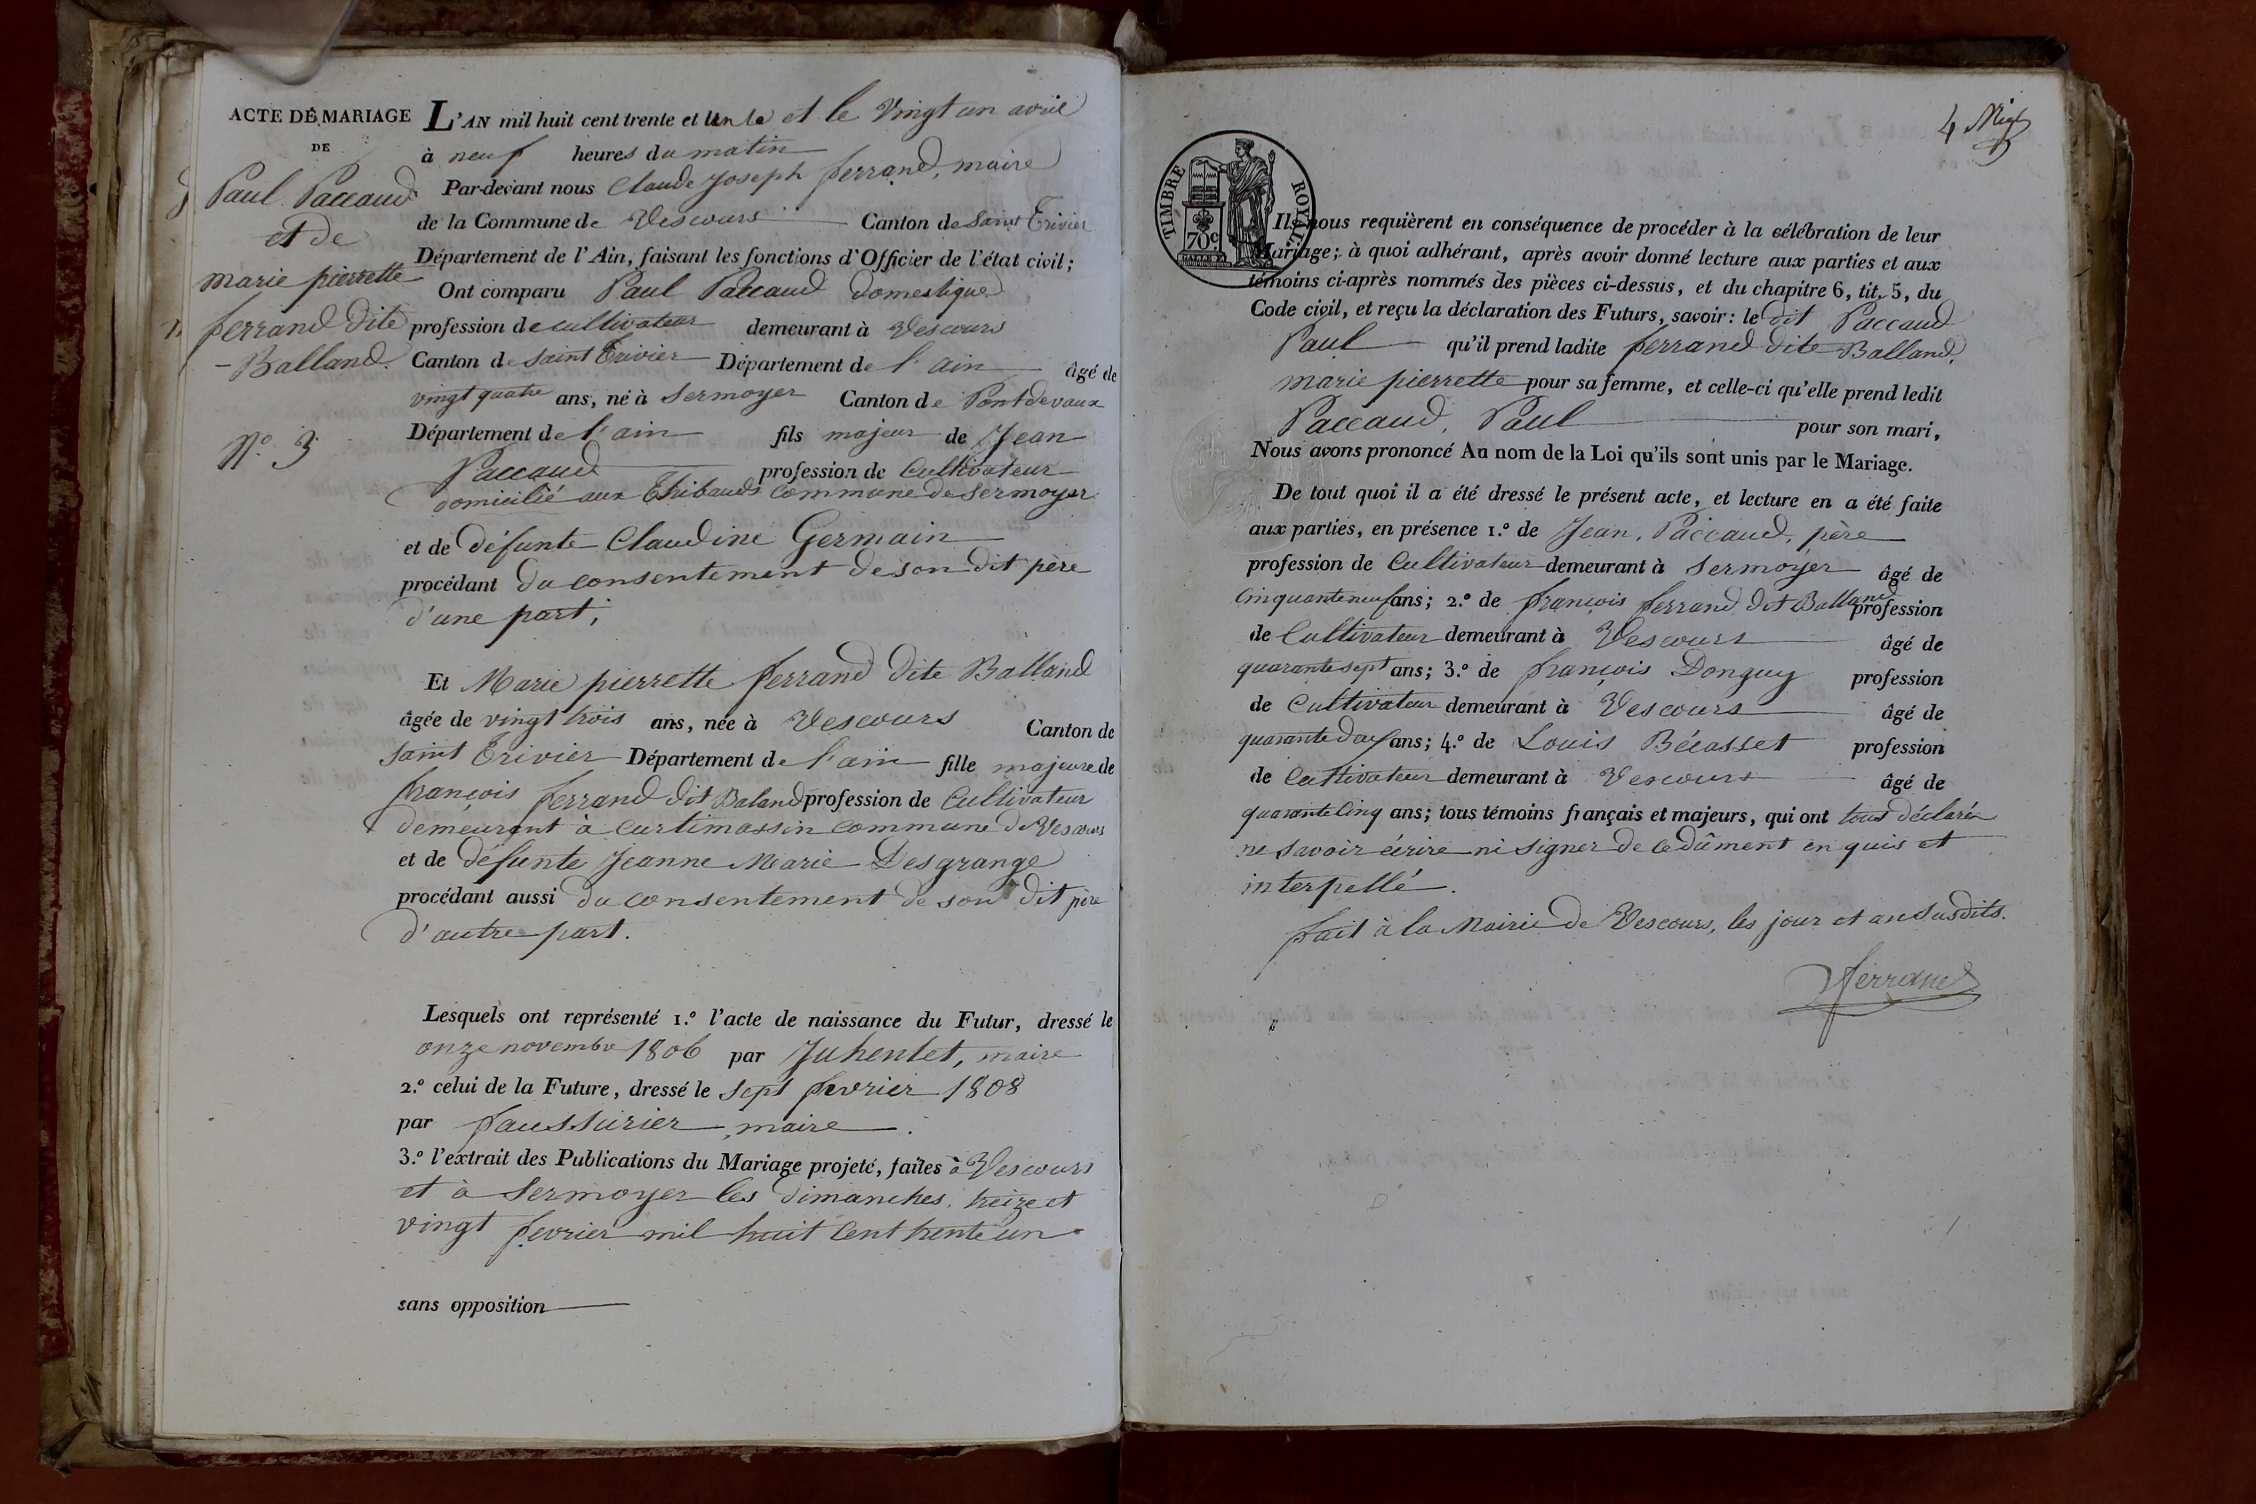 ACTE DE MARIAGE
DE
Paul Paccaud
et de
marie pierrette
ferrand dite
- Balland.
N.° 3
L'AN mil huit cent trente et un le et le vingt un avril
à neuf heures du matin
Par-devant nous Claude Joseph ferrand, maire
de la Commune de Vescours Canton de Saint Trivier
Département de l'Ain, faisant les fonctions d'Officier de l'état civil;
Ont comparu Paul Paccaud domestique
profession de cultivateur demeurant à Vescours
Canton de Saint Trivier Département de l'ain âgé de
vingt quatre ans, né à Sermoyer Canton de Pontdevaux
Département de l'ain fils majeur de Jean
Paccaud profession de Cultivateur
domicilié aux Thibauds Commune de Sermoyer
et de défunte Claudine Germain
procédant du consentement de son dit père
d'une part;
Et Marie pierrette ferrand dite Balland
âgée de vingt trois ans, née à Vescours Canton de
Saint Trivier Département de l'ain fille majeure de
françois ferrand dit Baland profession de Cultivateur
demeurant à curtimassin commune de Vescours
et de défunte Jeanne Marie Desgrange
procédant aussi du consentement de son dit père
d'autre part.
Lesquels ont représenté 1.° l'acte de naissance du Futur, dressé le
onze novembre 1806 par Juhentet, maire
2.° celui de la Future, dressé le sept fevrier 1808
par faussurier, maire.
3.° l'extrait des Publications du Mariage projeté, faites à Vescours
et à Sermoyer les dimanches treize et
vingt fevrier mil huit Cent trente un
sans opposition
4
TIMBRE ROYAL
70c
Ils nous requièrent en conséquence de procéder à la célébration de leur
Mariage; à quoi adhérant, après avoir donné lecture aux parties et aux
témoins ci-après nommés des pièces ci-dessus, et du chapitre 6, tit. 5, du
Code civil, et reçu la déclaration des Futurs, savoir: le dit Paccaud
Paul qu'il prend ladite ferrand dite Balland,
marie pierrette pour sa femme, et celle-ci qu'elle prend ledit
Paccaud, Paul pour son mari,
Nous avons prononcé Au nom de la Loi qu'ils sont unis par le Mariage.
De tout quoi il a été dressé le présent acte, et lecture en a été faite
aux parties, en présence 1.° de Jean, Paccaud, père
profession de Cultivateur demeurant à Sermoyer âgé de
Cinquante neuf ans; 2.° de françois ferrand dit Balland profession
de Cultivateur demeurant à Vescours âgé de
quarante sept ans; 3.° de françois Donguy profession
de Cultivateur demeurant à Vescours âgé de
quarante ans; 4.° de Louis Bécasset profession
de Cultivateur demeurant à Vescours âgé de
quarante Cinq ans; tous témoins français et majeurs, qui ont tous déclarés
ne savoir écrire ni signer de ce dûment en quis et
interpellé.
fait à la Mairie de Vescours, les jour et an susdits.
fferrand